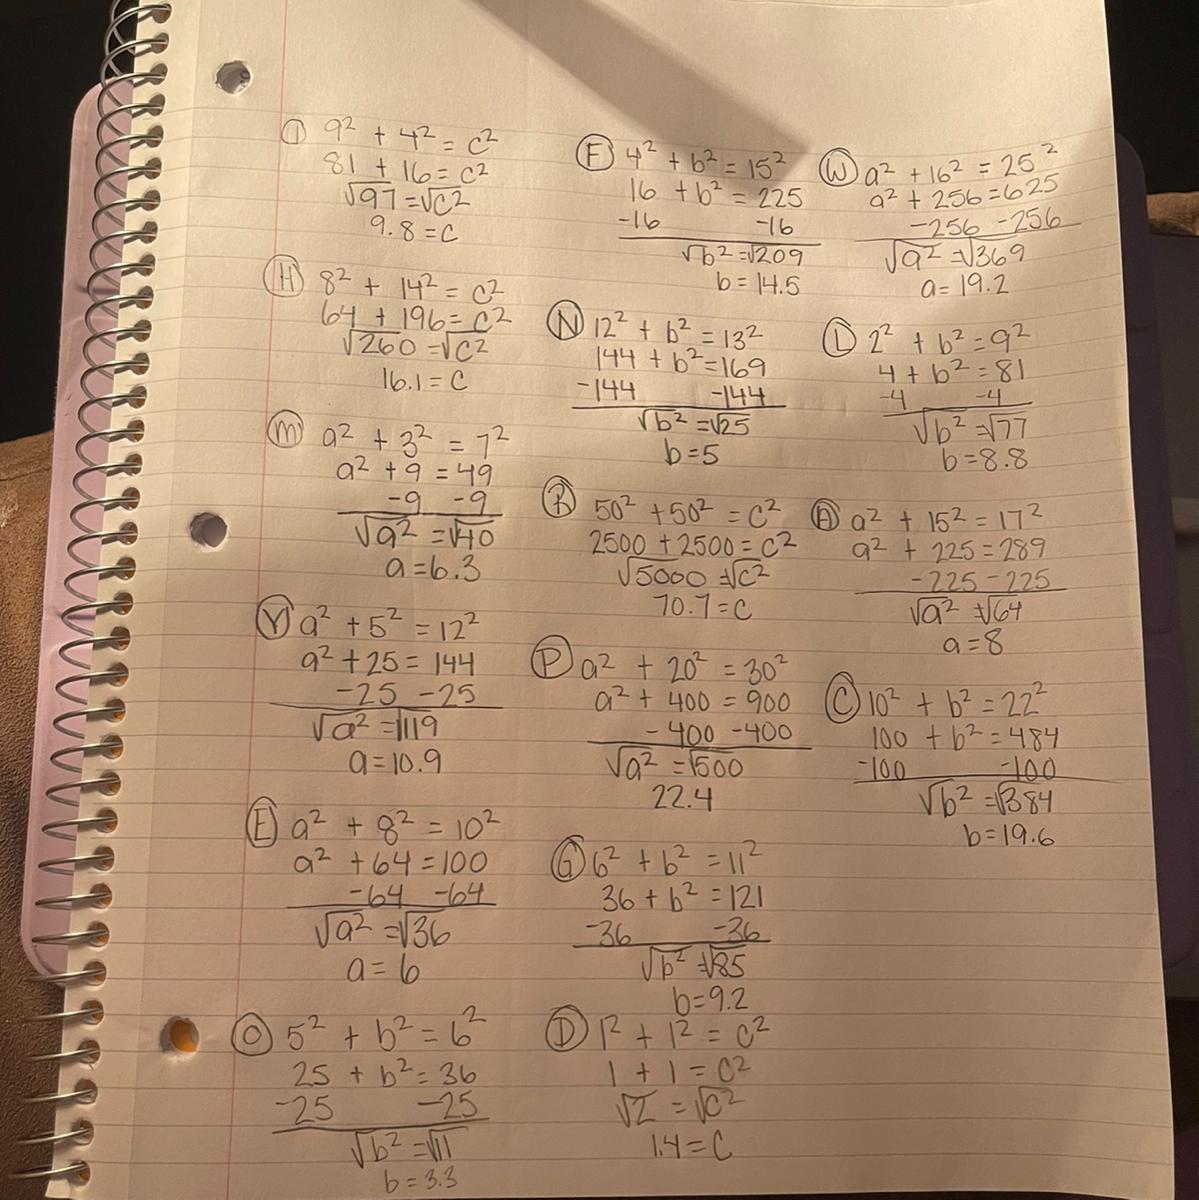 I 9² + 4² = c²
81 + 16 = c²
√97 = √c²
9.8 = c
H 8² + 14² = c²
64 + 196 = c²
√260 = √c²
16.1 = c
M a² + 3² = 7²
a² + 9 = 49
-9 -9
√a² = √40
a = 6.3
Y a² + 5² = 12²
a² + 25 = 144
-25 -25
√a² = √119
a = 10.9
E a² + 8² = 10²
a² + 64 = 100
-64 -64
√a² = √36
a = 6
O 5² + b² = 6²
25 + b² = 36
-25 -25
√b² = √11
b = 3.3
F 4² + b² = 15²
16 + b² = 225
-16 -16
√b² = √209
b = 14.5
N 12² + b² = 13²
144 + b² = 169
-144 -144
√b² = √25
b = 5
R 50² + 50² = c²
2500 + 2500 = c²
√5000 = √c²
70.7 = c
P a² + 20² = 30²
a² + 400 = 900
-400 -400
√a² = √500
22.4
G 6² + b² = 11²
36 + b² = 121
-36 -36
√b² = √85
b = 9.2
D 1² + 1² = c²
1 + 1 = c²
√2 = √c²
1.4 = c
W a² + 16² = 25²
a² + 256 = 625
-256 -256
√a² = √369
a = 19.2
L 2² + b² = 9²
4 + b² = 81
-4 -4
√b² = √77
b = 8.8
A a² + 15² = 17²
a² + 225 = 289
-225 -225
√a² = √64
a = 8
C 10² + b² = 22²
100 + b² = 484
-100 -100
√b² = √384
b = 19.6